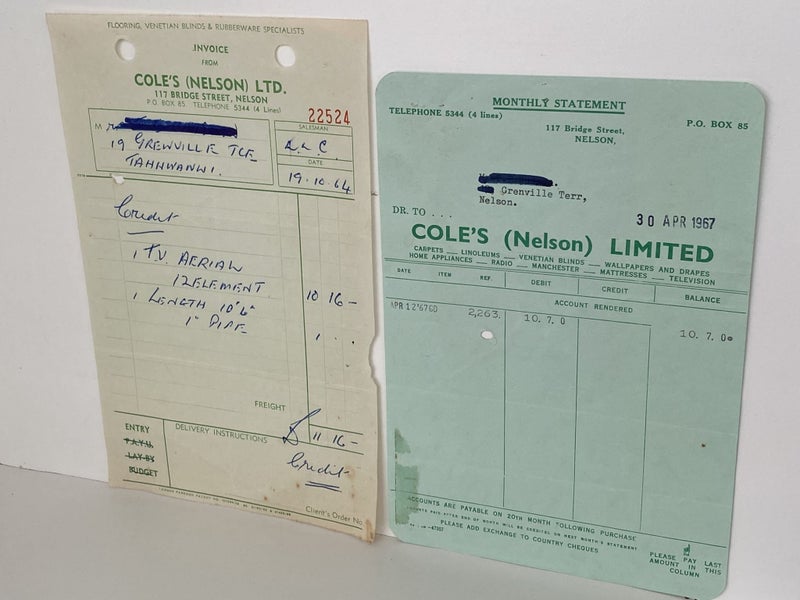 FLOORING, VENETIAN BLINDS & RUBBERWARE SPECIALISTS
INVOICE
FROM
COLE'S (NELSON) LTD.
117 BRIDGE STREET, NELSON
P.O. BOX 85 TELEPHONE 5344 (4 Lines)
22524
M
19 GRENVILLE TCE
TAHUNANUI.
SALESMAN
DATE
19.10.64
Credit
1 T.V. AERIAL
12 ELEMENT 10 16 -
1 LENGTH 10'6"
1" PIPE 1 . .
FREIGHT
ENTRY
P.A.Y.U.
LAY-BY
BUDGET
DELIVERY INSTRUCTIONS
11 16 -
Credit
Client's Order No.
MONTHLY STATEMENT
TELEPHONE 5344 (4 lines)
P.O. BOX 85
117 Bridge Street,
NELSON,
Grenville Terr,
Nelson.
30 APR 1967
DR. TO . . .
COLE'S (Nelson) LIMITED
CARPETS — LINOLEUMS — VENETIAN BLINDS — WALLPAPERS AND DRAPES
HOME APPLIANCES — RADIO — MANCHESTER — MATTRESSES — TELEVISION
DATE ITEM REF. DEBIT CREDIT BALANCE
ACCOUNT RENDERED
APR 12'67 2,263. 10. 7. 0 10. 7. 0
ACCOUNTS ARE PAYABLE ON 20TH MONTH FOLLOWING PURCHASE
PAID AFTER END OF MONTH WILL BE CREDITED ON NEXT MONTH'S STATEMENT
PLEASE ADD EXCHANGE TO COUNTRY CHEQUES
PLEASE PAY LAST
AMOUNT IN THIS
COLUMN